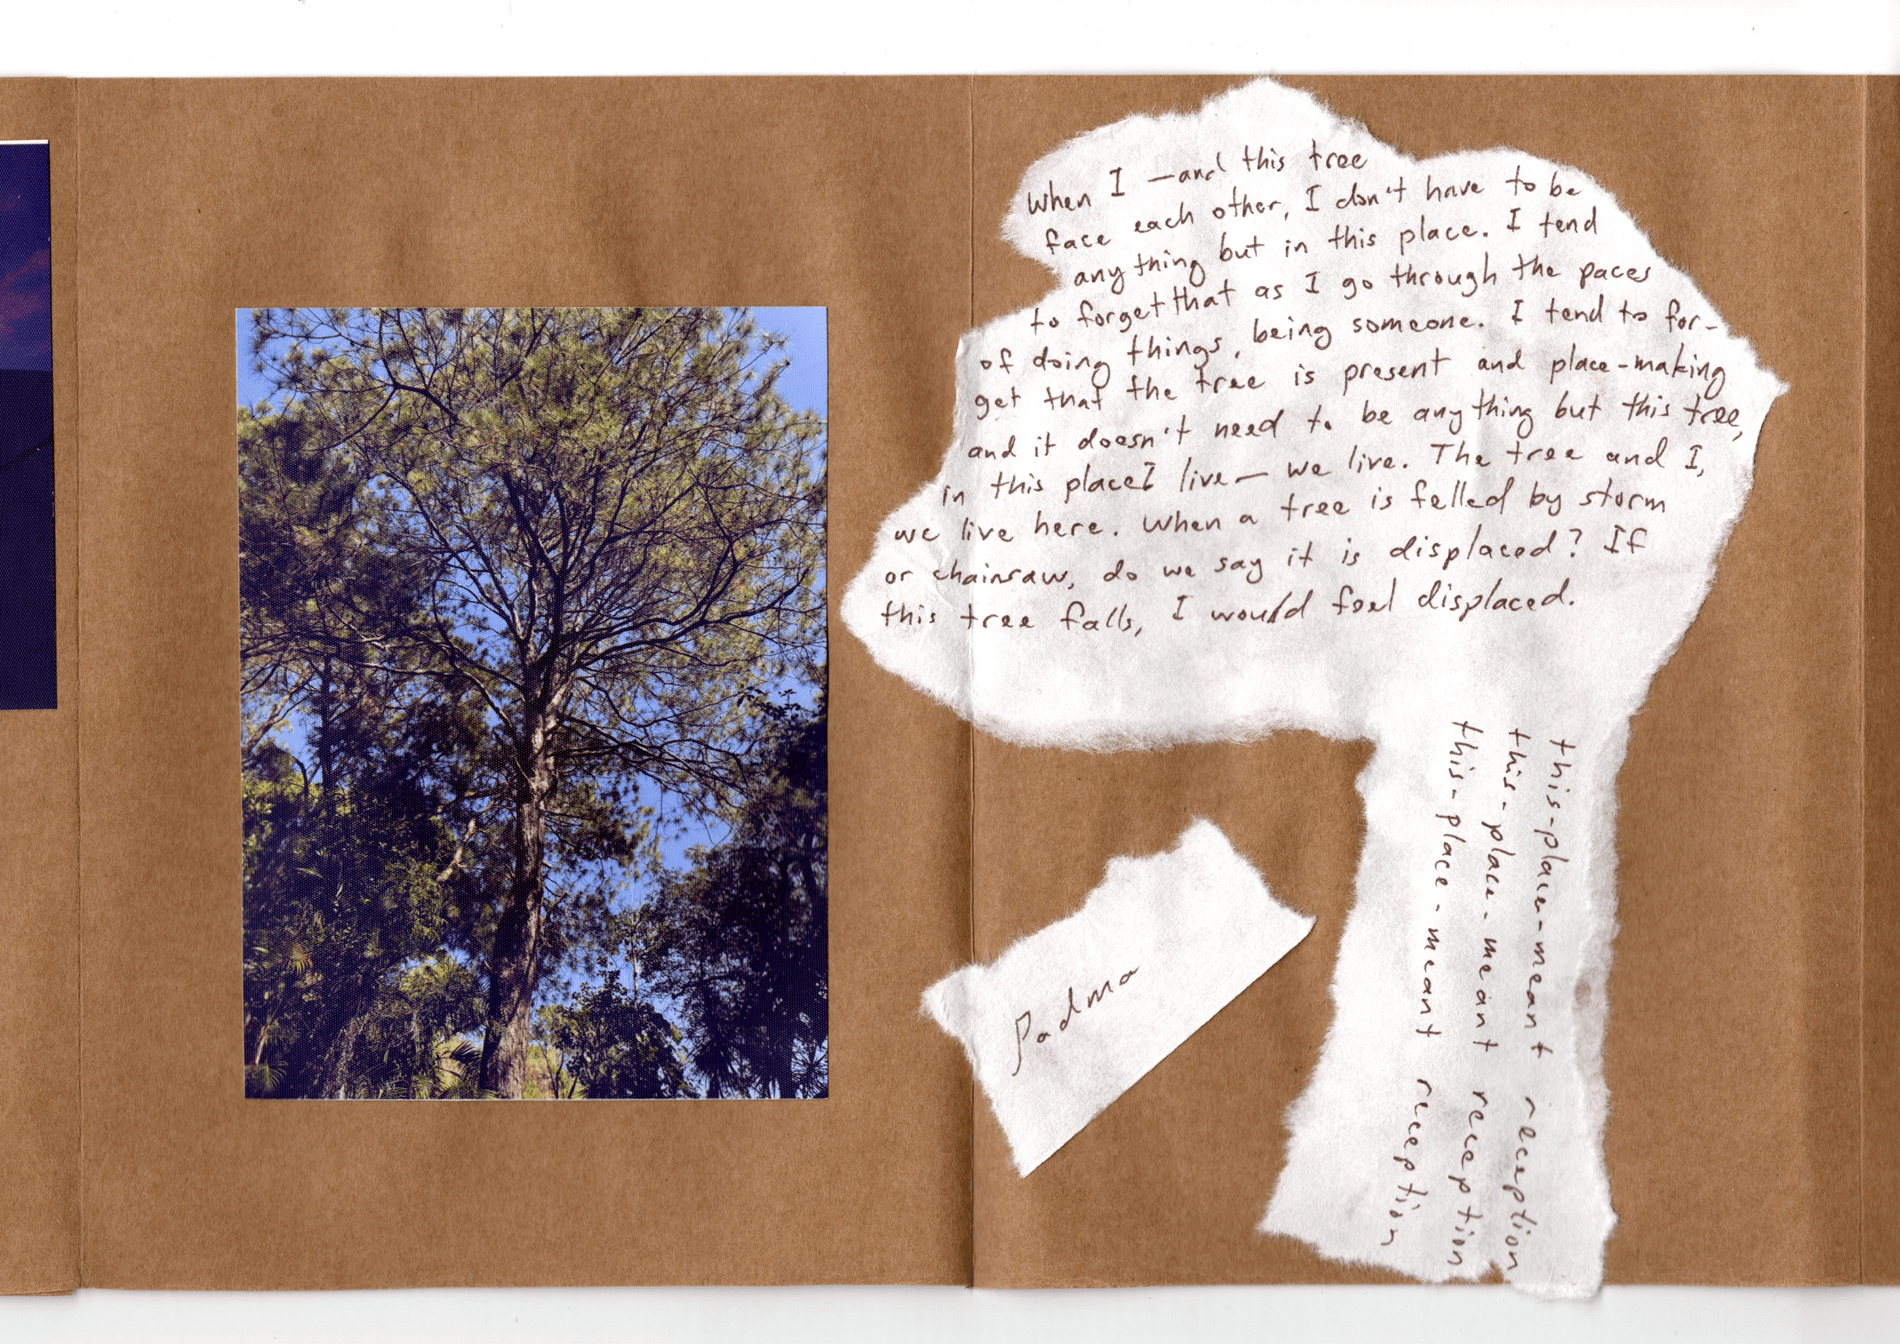 When I —and this tree
face each other, I don't have to be
anything but in this place. I tend
to forget that as I go through the paces
of doing things, being someone. I tend to for-
get that the tree is present and place-making
and it doesn't need to be anything but this tree,
in this place I live— we live. The tree and I,
we live here. When a tree is felled by storm
or chainsaw, do we say it is displaced? If
this tree falls, I would feel displaced.
this-place-meant reception
this-place-meant reception
this-place-meant reception
Padma